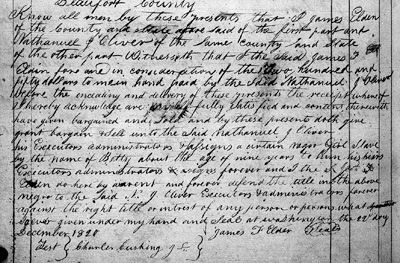 Beaufort County
Know all men by these presents that I James Elder
of the County and State afore said of the first part and
Nathanuel J Oliver of the same County and State
of the other part Witnesseth that I the said James F
Elder for & in consideration of the two hundred and
fifty dollars in hand paid by the said Nathanuel J Oliver
before the ensealing and delivery of these presents the receipt whereof
I hereby acknowledge are fully satisfied and content therewith
have given bargained and Sold and by these presents doth give
grant bargain & Sell unto the Said Nathanuel J Oliver
his Executors administrators & assigns a certain negro Girl Slave
by the name of Betty about the age of nine years to him his heirs
Executors administrators & assigns forever and I the James F
Elder do here by warrent and forever defend the title in the above
negro to the Said N. J Oliver Executors & administrators forever
against the right title or intrest of any person or persons what
soever given under my hand and Seal at Washington the 22d day
December 1828 James F Elder Seal
Test Charles Cushing